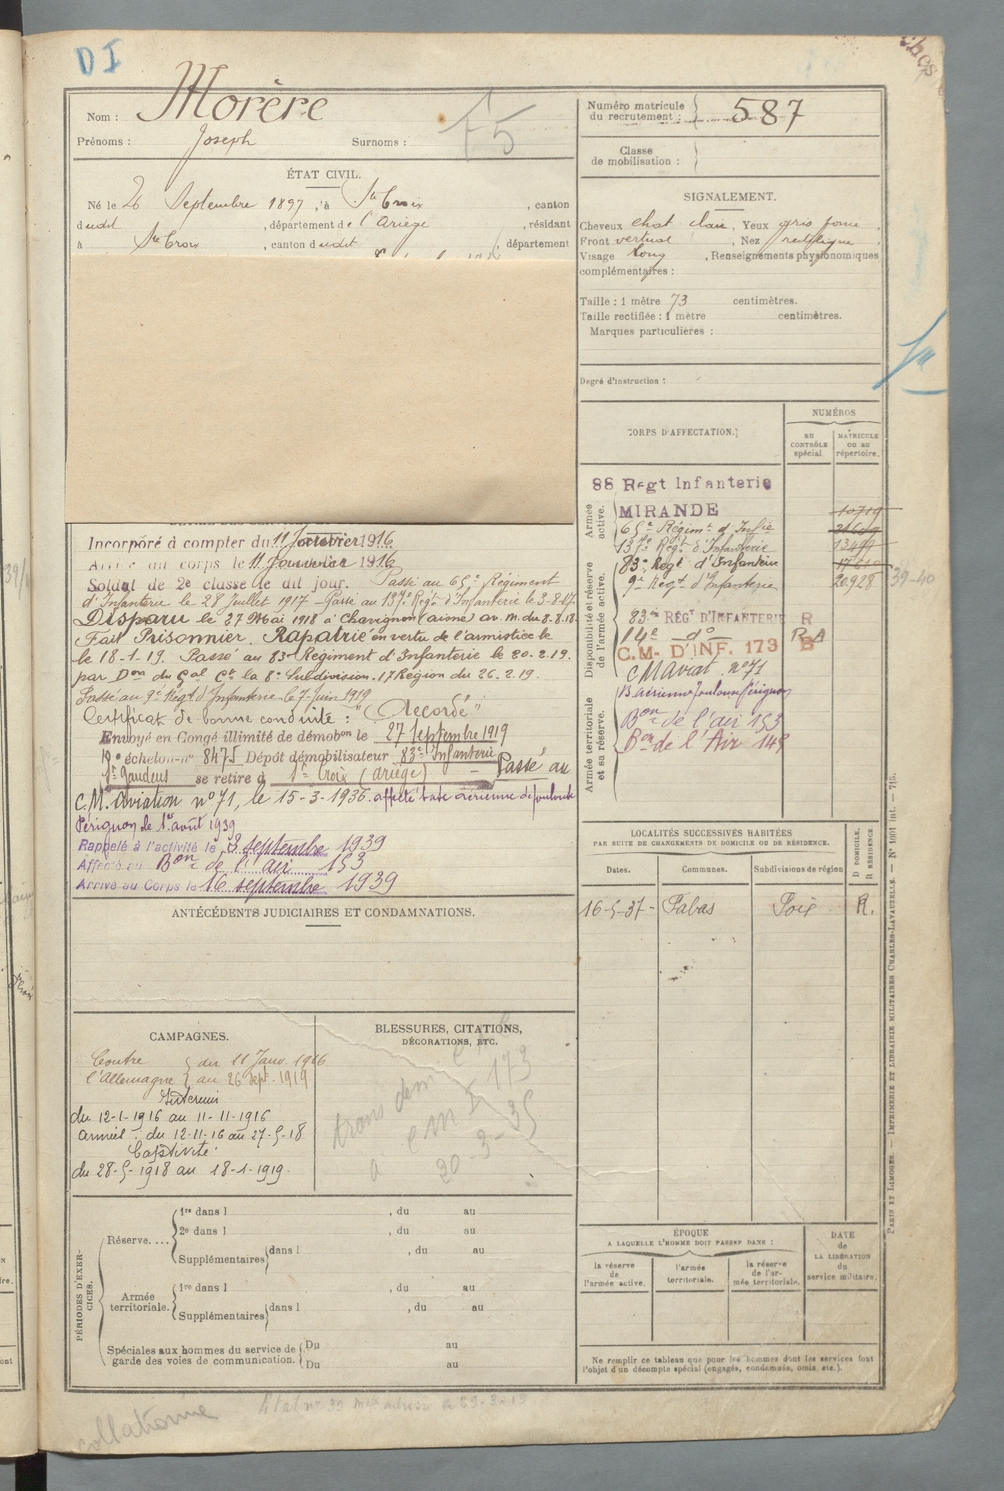 DI
Nom : Morère
Prénoms : Joseph Surnoms :
F5
ÉTAT CIVIL.
Né le 26 Septembre 1897, à Ste Croix, canton
dudit, département de l'Ariège, résidant
à Ste Croix, canton dudit, département
Incorporé à compter du 11 Janvier 1916
Arrivé au corps le 11 Janvier 1916
Soldat de 2e classe le dit jour. Passé au 65e Régiment
d'Infanterie le 28 Juillet 1917 - Passé au 137e Régt d'Infanterie le 3-8-17.
Disparu le 27 Mai 1918 à Chavignon (aisne) av. m. du 8-8-18.
Fait Prisonnier. Rapatrié en vertu de l'armistice le
le 18-1-19. Passé au 83e Régiment d'Infanterie le 20-2-19.
par Don du Gal Ct la 8e Subdivision. 17 Région du 26.2.19.
Passé au 9e Régt d'Infanterie le 7 Juin 1919
Certificat de bonne conduite : "Accordé"
Envoyé en Congé illimité de démobon le 27 Septembre 1919
échelon no 8475 Dépôt démobilisateur 83e Infanterie
St Gaudens se retire à Ste Croix (Ariège) - Passé au
C.M. Aviation no 71, le 15-3-1936. affecté base aérienne de Toulouse
Pérignon le 1er août 1939
Rappelé à l'activité le 3 septembre 1939
Affecté au Bon de l'air 153
Arrivé au Corps le 16 septembre 1939
ANTÉCÉDENTS JUDICIAIRES ET CONDAMNATIONS.
CAMPAGNES.
Contre { du 11 Janv. 1916
l'Allemagne { au 26 sept. 1919
Intérieur
du 12-1-1916 au 11-11-1916
armée : du 12-11-16 au 27-5-18
Captivité
du 28-5-1918 au 18-1-1919.
BLESSURES, CITATIONS,
DÉCORATIONS, ETC.
trans dem
à CM I 173
20-3-35
PÉRIODES D'EXERCICES.
Réserve....
1re dans l , du au
2e dans l , du au
Supplémentaires dans l , du au
Armée territoriale.
1re dans l , du au
Supplémentaires dans l , du au
Spéciales aux hommes du service de garde des voies de communication.
Du au
Du au
collationné
Numéro matricule
du recrutement : 587
Classe
de mobilisation :
SIGNALEMENT.
Cheveux chat clair, Yeux gris foncé,
Front vertical, Nez rectiligne,
Visage long, Renseignements physionomiques
complémentaires :
Taille : 1 mètre 73 centimètres.
Taille rectifiée : 1 mètre centimètres.
Marques particulières :
Degré d'instruction :
CORPS D'AFFECTATION.
NUMÉROS
AU CONTRÔLE spécial.
MATRICULE OU AU répertoire.
Armée active.
88 Régt Infanterie
MIRANDE 10719
65e Régimt d'Infie
137e Régt d'Infanterie 13499
Disponibilité et réserve de l'armée active.
83e Régt d'Infanterie
9e Régt d'Infanterie 20928 39-40
83e RÉGT D'INFANTERIE R
14e do
C.M. D'INF. 173 B
CM Aviat. no 71
B aérienne Toulouse Pérignon
Armée territoriale et sa réserve.
Bon de l'air 153
Bon de l'Air 143
LOCALITÉS SUCCESSIVES HABITÉES
PAR SUITE DE CHANGEMENTS DE DOMICILE OU DE RÉSIDENCE.
D DOMICILE. R RÉSIDENCE.
Dates. Communes. Subdivisions de région
16-5-37- Fabas Foix R.
ÉPOQUE
A LAQUELLE L'HOMME DOIT PASSER DANS :
la réserve de l'armée active. l'armée territoriale. la réserve de l'armée territoriale.
DATE de LA LIBÉRATION du service militaire.
Ne remplir ce tableau que pour les hommes dont les services font
l'objet d'un décompte spécial (engagés, condamnés, omis, etc.).
PARIS ET LIMOGES. — IMPRIMERIE ET LIBRAIRIE MILITAIRES CHARLES-LAVAUZELLE. — No 1001 int. — 715.